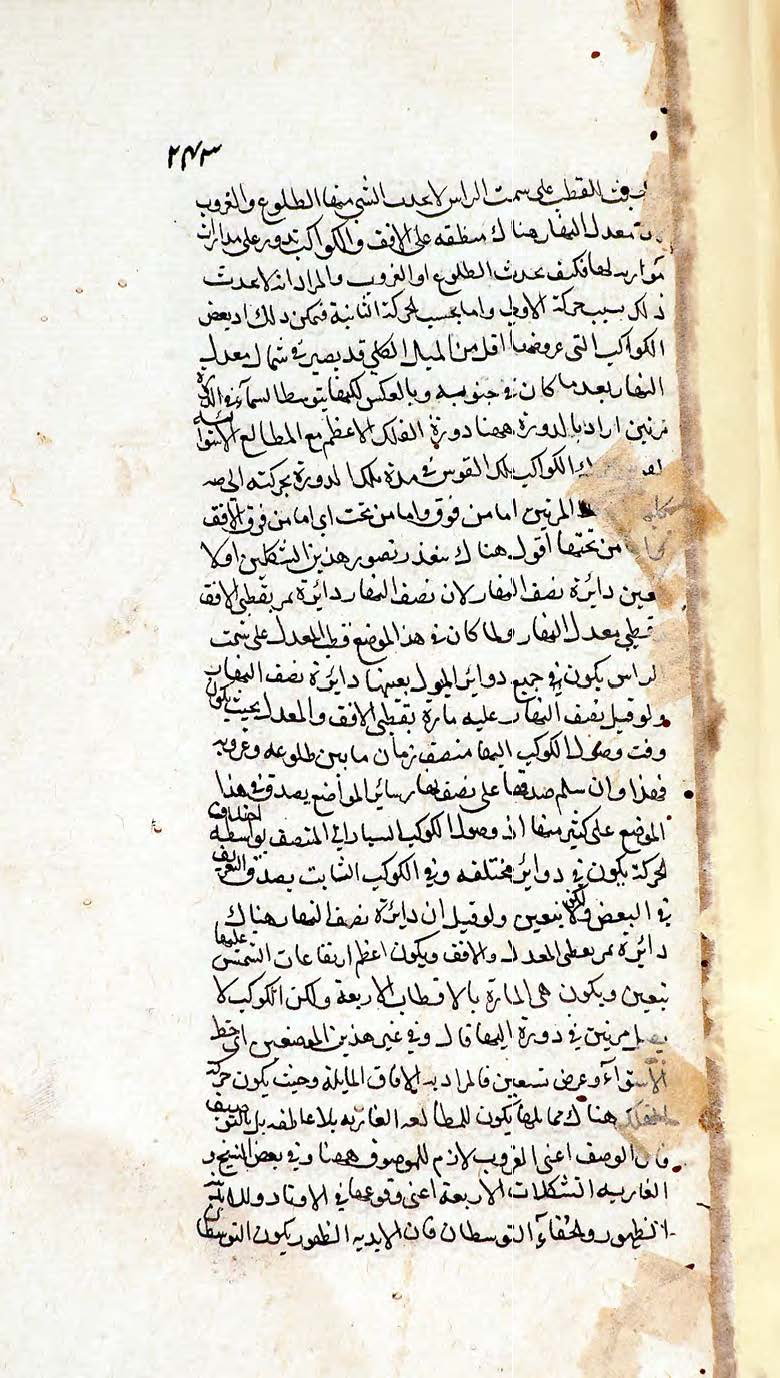 ٢٤٣
القطب على سمت الراس لا يحدث الشى منها الطلوع والغروب
معدل النهار هناك منطقه على الافق والكواكب تدور على مدارات
موازيه لها فكيف يحدث الطلوع او الغروب والمراد انه لا يحدث
ذلك بسبب حركة الاولى واما بحسب الحركة الثانية فيمكن ذلك اذ بعض
الكواكب التى عروضها اقل من الميل الكلى قد يصير فى شمال معدل
النهار بعد ما كان فى جنوبيه وبالعكس لكنها يتوسط السماء فى الدورة
مرتين اراد بالدورة ههنا دورة الفلك الاعظم مع المطالع الاستوائيه
الكواكب تلك القوس فى مدة تلك الدورة بحركته الى
المرتين اما من فوق واما من تحت اى اما من فوق الافق
من تحتها اقول هناك يتعذر تصور هذين الشكلين اولا
يتعين دائرة نصف النهار لان نصف النهار دائرة يمر بقطبى الافق
قطبى معدل النهار ولما كان فى هذا الموضع قطب المعدل على سمت
الراس يكون فى جميع دوائر الميول بعينها دائرة نصف النهار
ولو قيل نصف النهار عليه مارة بقطبى الافق والمعدل بحيث يكون
وقت وصول الكوكب اليها منتصف زمان ما بين طلوعه وغروبه
فهذا وان سلم صدقها على نصف نهار سائر المواضع يصدق فى هذا
الموضع على كثير منها اذ وصول الكوكب السيار الى المنتصف بواسطة اختلاف
الحركة يكون فى دوائر مختلفه وفى الكوكب الثابت يصدق التعريف
فى البعض ولكن لا يتعين ولو قيل ان دايرة نصف النهار هناك
دائرة يمر بقطبى المعدل والافق ويكون اعظم ارتفاعات الشمس عليها
يتعين ويكون هى المارة بالاقطاب الاربعة ولكن الكوكب لا
يصل مرتين فى دورة اليها قال وفى غير هذين الموضعين اى خط
الاستواء وعرض تسعين فالمراد به الافاق المايلة وحيث يكون حركة
الفلك هناك حمايلها يكون للمطالعه الغاربه بلا عاطفه بل بالتوصيف
فان الوصف اعنى الغروب لازم للموصوف ههنا وفى بعض النسخ و
الغاربيه التشكلات الاربعة اعنى وقوعها فى الاوتاد وللابدية
الظهور والخفاء التوسطان فان الابديه الظهور يكون التوسطان